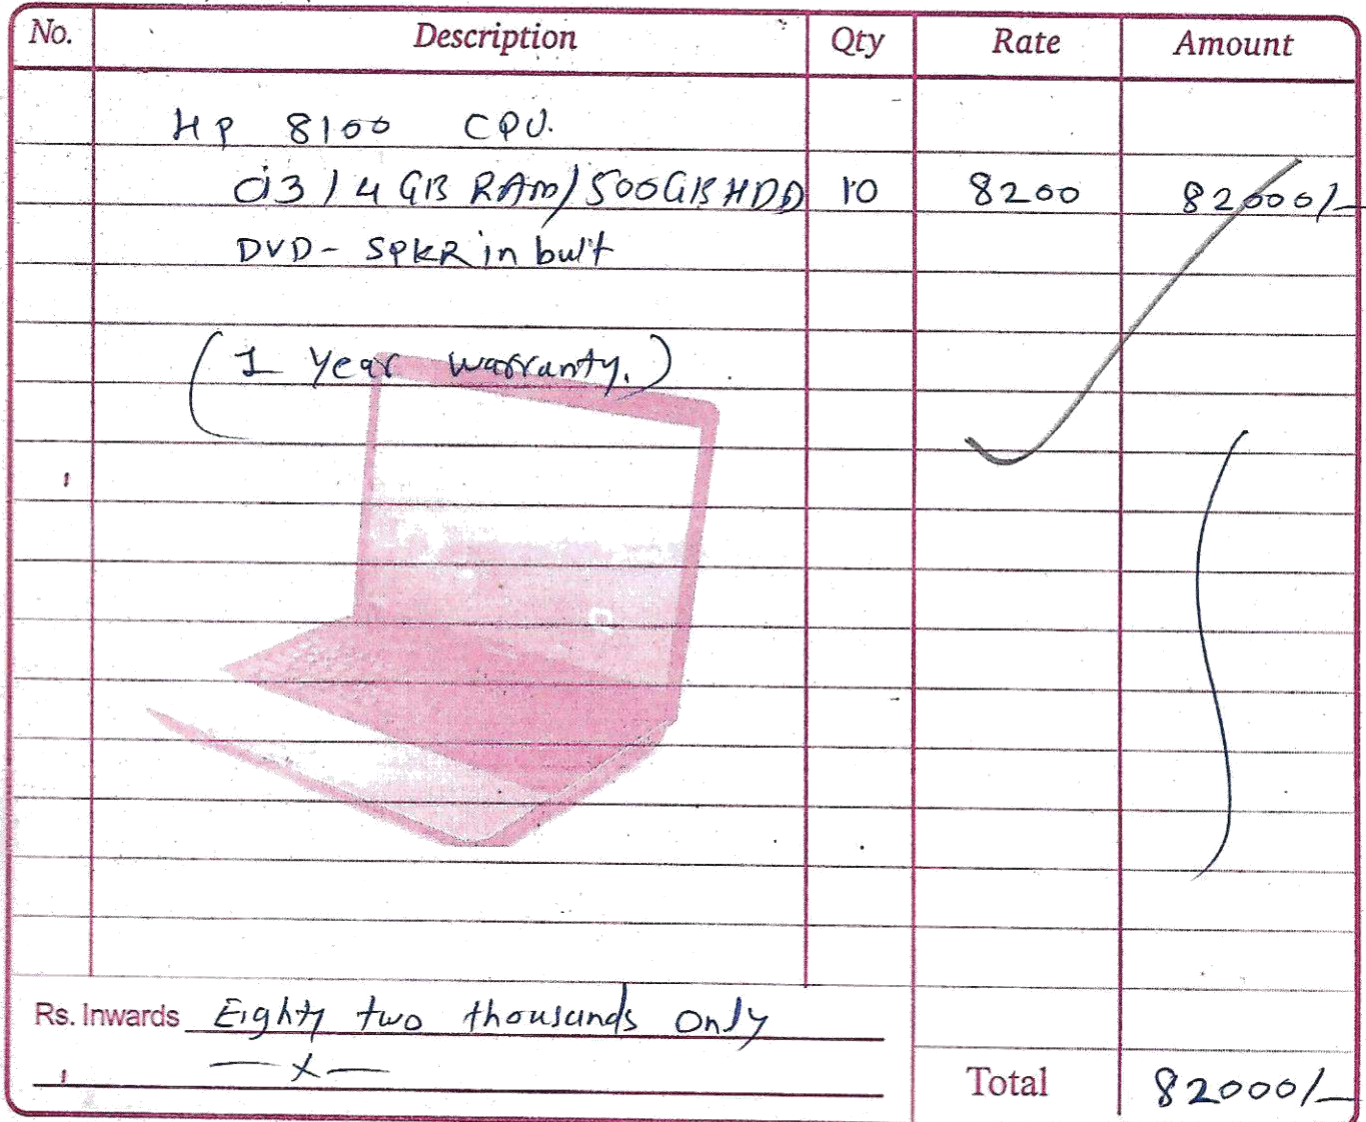 No. Description Qty Rate Amount
HP 8100 CPU.
i3 / 4 GB RAM / 500GB HDD 10 8200 82000/-
DVD - SPKR in bult
(1 Year warranty.)
Rs. Inwards Eighty two thousands only
—x—
Total 82000/-